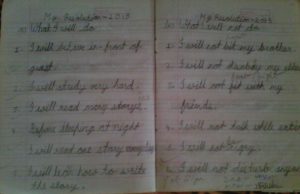 My Resolution - 2013
What I will do
1. I will behave in front of
guest.
2. I will study very hard.
3. I will read more storys.
4. Before sleeping at night
I will read one story
5. I will learn how to write
the story.
My Resolution - 2013
What I will not do
1. I will not hit my brother
2. I will not disturb my
3. I will not get with my
friends.
4. I will not talk while
5. I will not cry.
6. I will not disturb